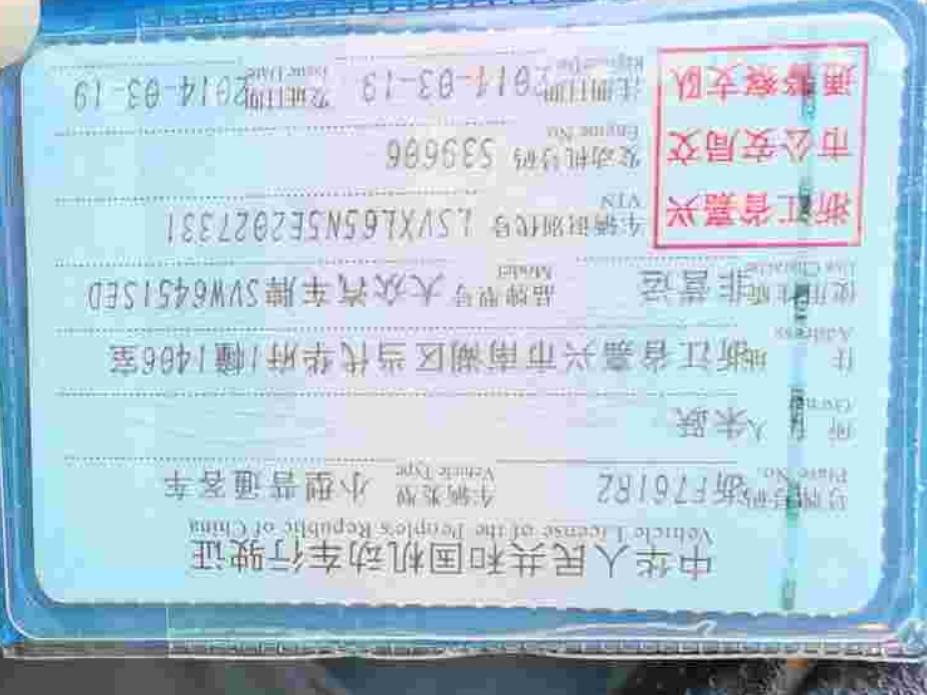 中华人民共和国机动车行驶证
Vehicle License of the People's Republic of China
号牌号码 浙F761R2 车辆类型 小型普通客车
Plate No. Vehicle Type
所有人 朱跃
Owner
住址 浙江省嘉兴市南湖区当代华府1幢1406室
Address
使用性质 非营运 品牌型号 大众汽车牌SVW6451SED
Use Character Model
浙江省嘉兴
市公安局交
通警察支队
车辆识别代号 LSVXL65N5E2027331
VIN
发动机号码 S39606
Engine No.
注册日期 2014-03-19 发证日期 2014-03-19
Register Date Issue Date